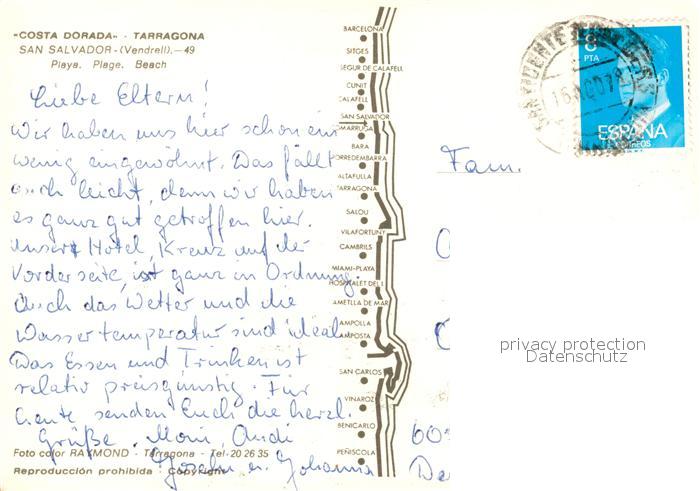 "COSTA DORADA" - TARRAGONA
SAN SALVADOR - (Vendrell). - 49
Playa. Plage. Beach
Liebe Eltern!
Wir haben uns hier schon ein
wenig eingewöhnt. Das fällt
auch leicht, denn wir haben
es ganz gut getroffen hier.
Unser Hotel, Kreuz auf der
Vorderseite, ist ganz in Ordnung.
Auch das Wetter und die
Wassertemperatur sind ideal.
Das Essen und Trinken ist
relativ preisgünstig. Für
heute senden Euch die herzl.
Grüße. Moni, Andi
u. Johanna
Foto color RAYMOND - Tarragona - Tel. 20 26 35
Reproducción prohibida - Copyright
BARCELONA
SITGES
SEGUR DE CALAFELL
CUNIT
CALAFELL
SAN SALVADOR
COMARRUGA
BARA
TORREDEMBARRA
ALTAFULLA
TARRAGONA
SALOU
VILAFORTUNY
CAMBRILS
MIAMI-PLAYA
HOSPITALET DEL I.
AMETLLA DE MAR
AMPOLLA
AMPOSTA
SAN CARLOS
VINAROZ
BENICARLO
PEÑISCOLA
Fam.
60
De
8
PTA
ESPAÑA
CORREOS
SAN VICENTE
privacy protection
Datenschutz